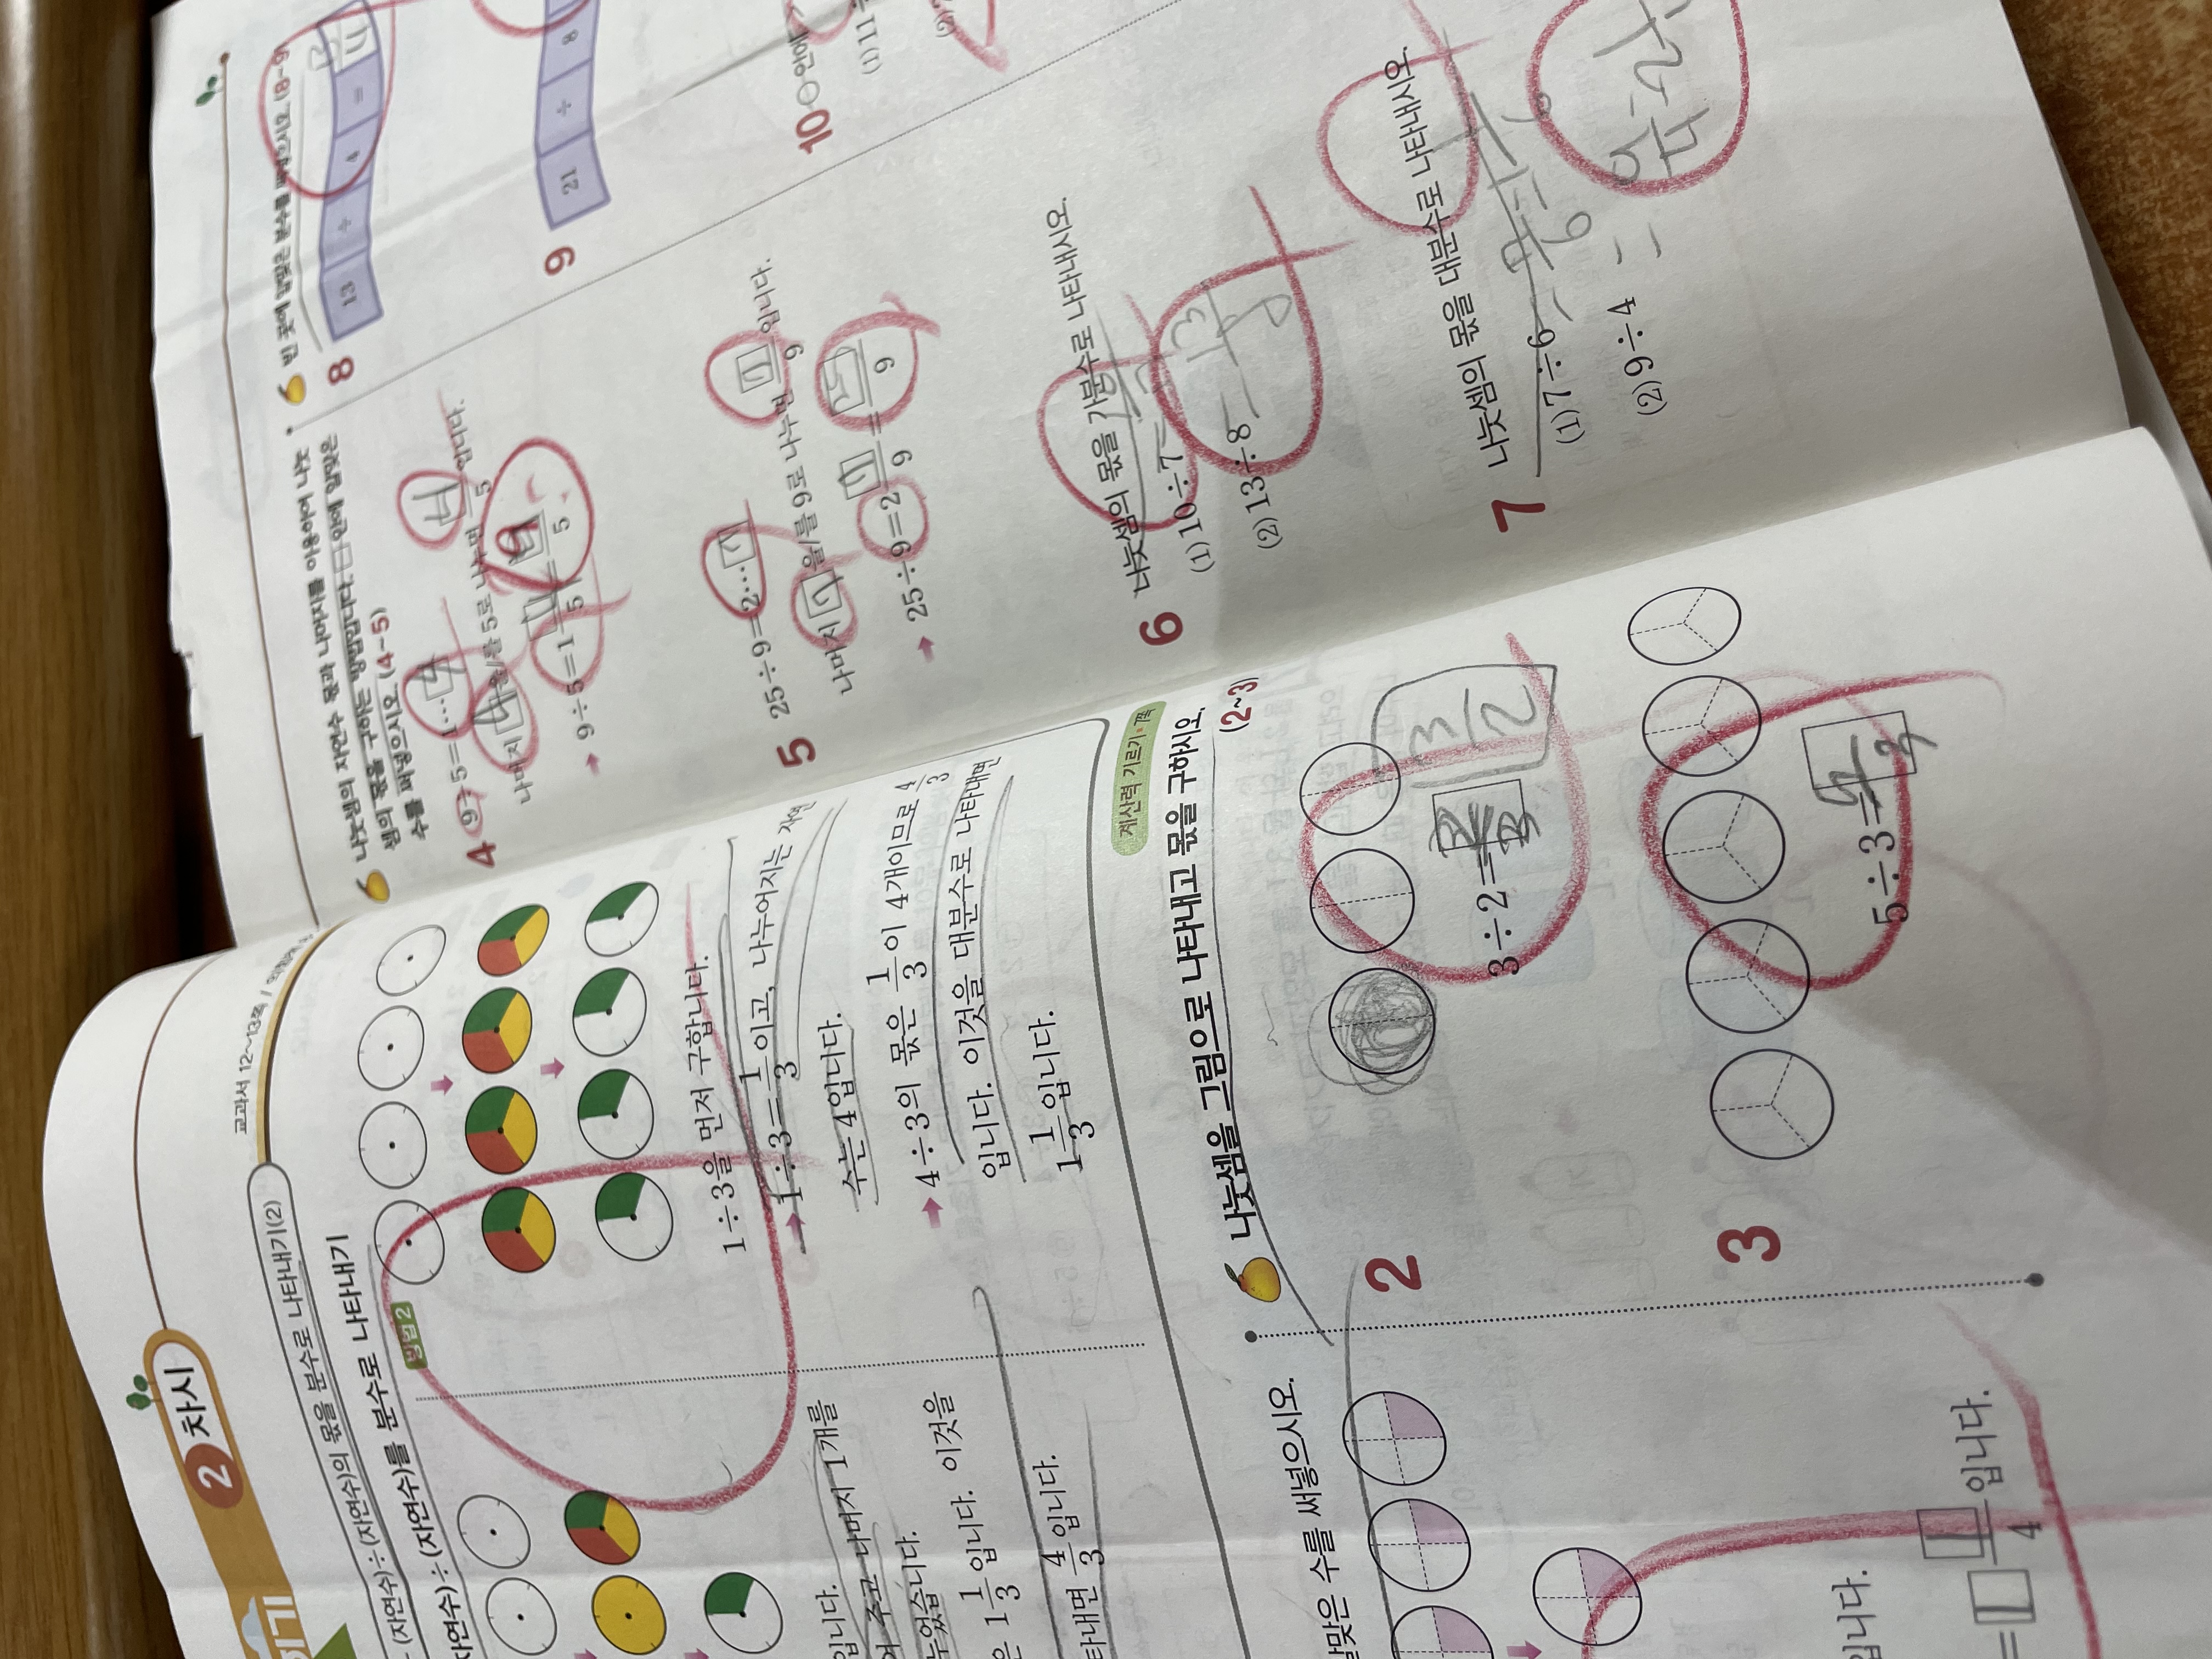 2 차시
교과서 12~13쪽
(자연수)÷(자연수)의 몫을 분수로 나타내기(2)
(자연수)÷(자연수)를 분수로 나타내기
입니다.
주고 나머지 1개를
누었습니다.
은 1 1/3 입니다. 이것을
타내면 4/3 입니다.
방법 2
1÷3을 먼저 구합니다.
1÷3=1/3이고, 나누어지는
수는 4입니다.
4÷3의 몫은 1/3이 4개이므로 4/3
입니다. 이것을 대분수로 나타내면
1 1/3 입니다.
계산력 기르기
알맞은 수를 써넣으시오.
입니다.
= 1 1/4 입니다.
나눗셈을 그림으로 나타내고 몫을 구하시오.
(2~3)
2
3÷2=
3/2
3
5÷3=
나눗셈의 자연수 몫과 나머지를 이용하여 나눗
셈의 몫을 구하는 방법입니다. □ 안에 알맞은
수를 써넣으시오. (4~5)
4 9÷5=1…4
나머지 4을/를 5로 나누면 4/5 입니다.
9÷5=1 4/5 = 9/5
5 25÷9=2…7
나머지 7을/를 9로 나누면 7/9 입니다.
25÷9=2 7/9 = 25/9
6 나눗셈의 몫을 가분수로 나타내시오.
(1) 10÷7
(2) 13÷8 = 13/8
7 나눗셈의 몫을 대분수로 나타내시오.
(1) 7÷6 = 7/6 = 1 1/6
(2) 9÷4 = 9/4 = 2 1/4
빈 곳에 알맞은 분수를 써넣으시오. (8~9)
8 13 ÷ 4 = 13/4
9 21 ÷ 8
10 ○ 안에
(1) 11÷